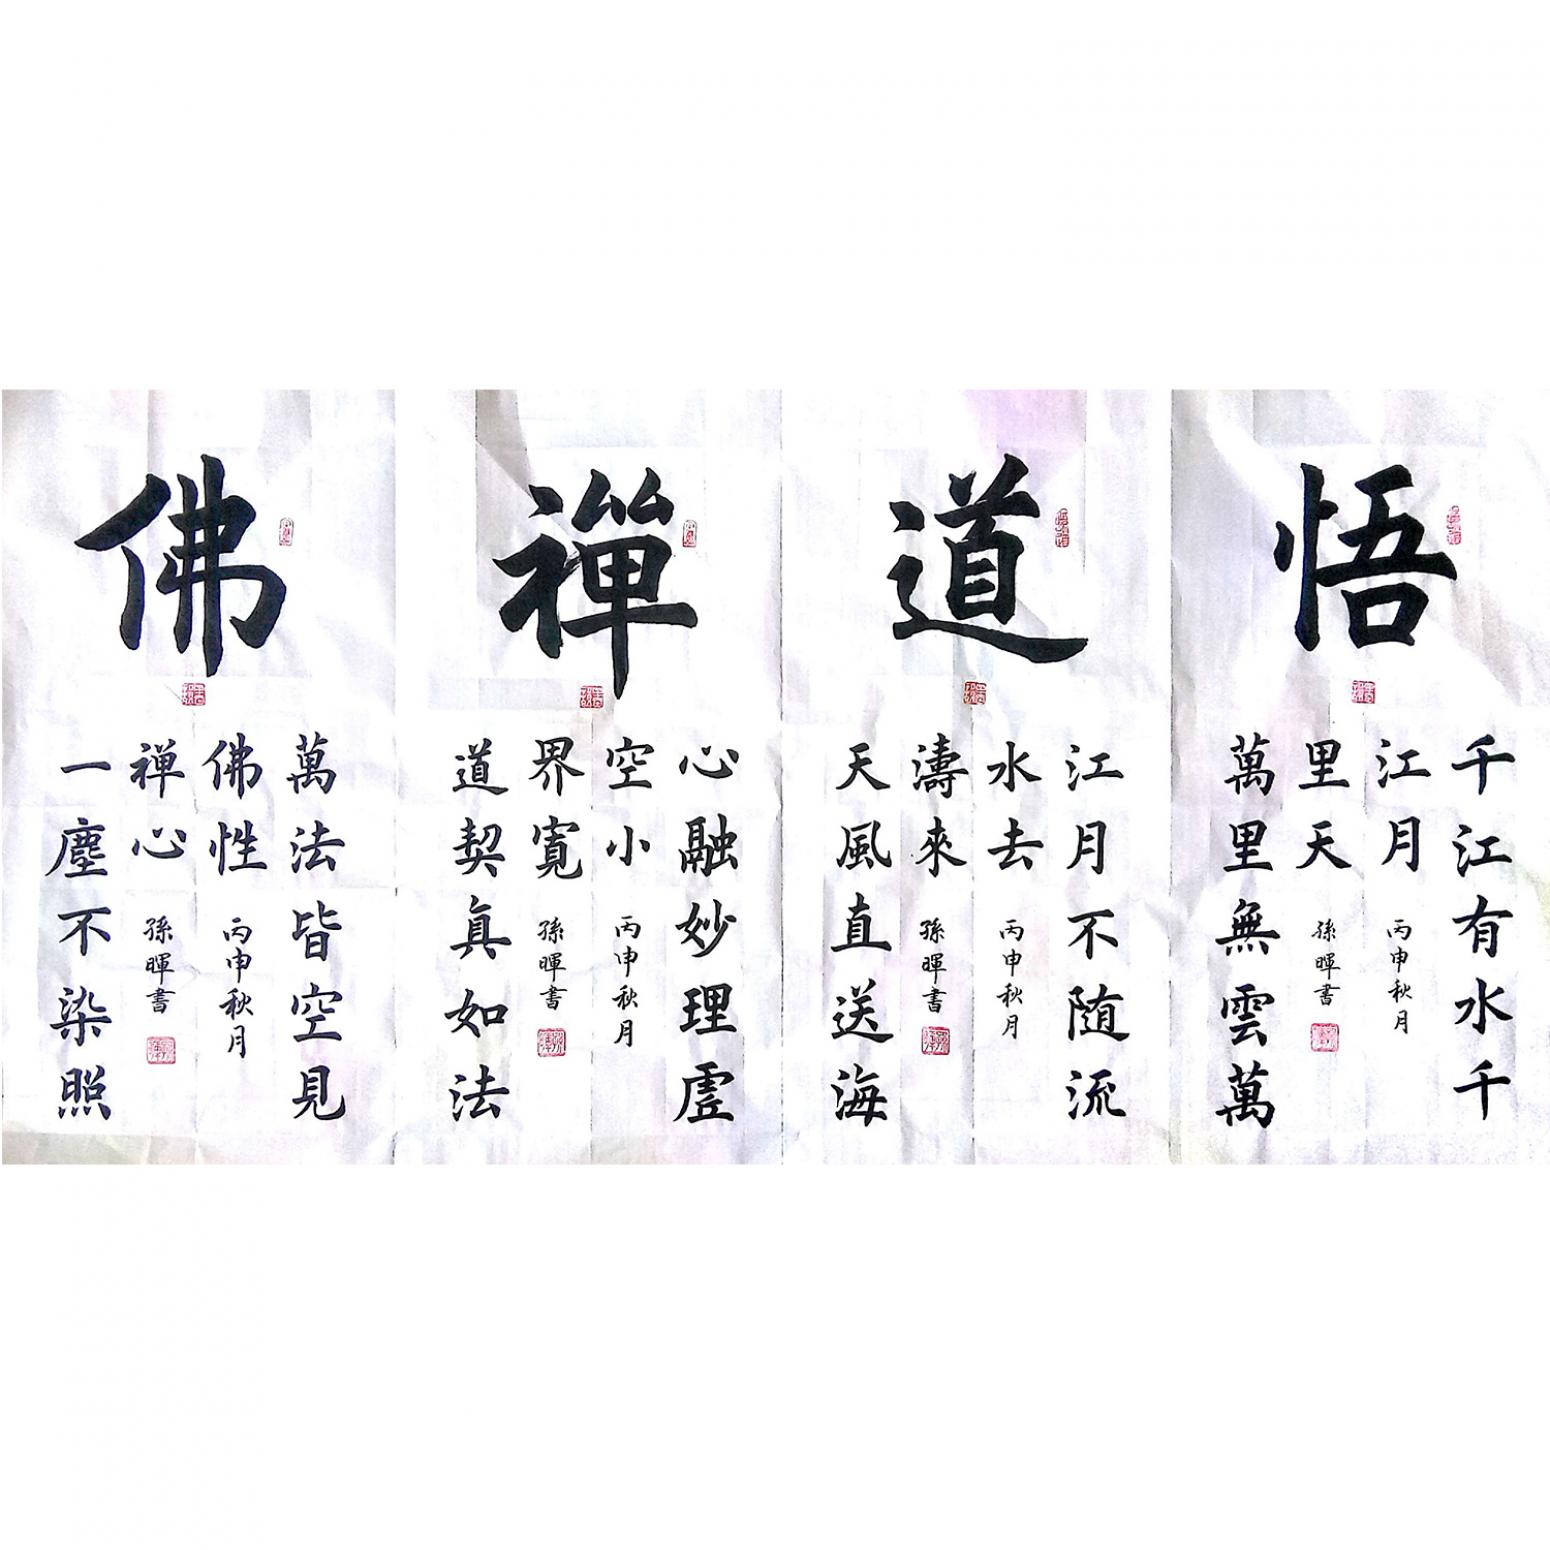 悟
千江有水千
江月
丙申秋月
萬里無雲萬
里天
孫暉書
道
江月不随流
水去
丙申秋月
天風直送海
濤來
孫暉書
禪
心融妙理虛
空小
丙申秋月
道契真如法
界寬
孫暉書
佛
萬法皆空見
佛性
丙申秋月
一塵不染照
禅心
孫暉書